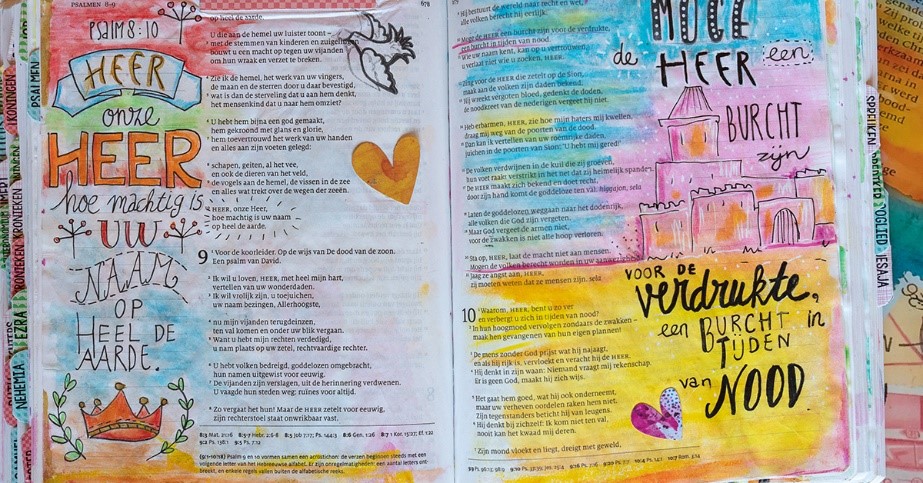 PSALMEN 8-9
678
PSALM 8:10
HEER
onze
HEER
hoe machtig is
UW
NAAM
OP
HEEL DE
AARDE.
op heel de aarde.
U die aan de hemel uw luister toont –
met de stemmen van kinderen en zuigelingen
bouwt u een macht op tegen uw vijanden
om hun wraak en verzet te breken.
Zie ik de hemel, het werk van uw vingers,
de maan en de sterren door u daar bevestigd,
wat is dan de sterveling dat u aan hem denkt,
het mensenkind dat u naar hem omziet?
U hebt hem bijna een god gemaakt,
hem gekroond met glans en glorie,
hem toevertrouwd het werk van uw handen
en alles aan zijn voeten gelegd:
schapen, geiten, al het vee,
en ook de dieren van het veld,
de vogels aan de hemel, de vissen in de zee
en alles wat trekt over de wegen der zeeën.
HEER, onze Heer,
hoe machtig is uw naam
op heel de aarde.
9 Voor de koorleider. Op de wijs van De dood van de zoon.
Een psalm van David.
Ik wil u loven, HEER, met heel mijn hart,
vertellen van uw wonderdaden.
Ik wil vrolijk zijn, u toejuichen,
uw naam bezingen, Allerhoogste,
nu mijn vijanden terugdeinzen,
ten val komen en onder uw blik vergaan.
Want u hebt mijn rechten verdedigd,
u nam plaats op uw zetel, rechtvaardige rechter.
U hebt volken bedreigd, goddelozen omgebracht,
hun namen uitgewist voor eeuwig.
De vijanden zijn verslagen, uit de herinnering verdwenen.
U vaagde hun steden weg: ruïnes voor altijd.
Zo vergaat het hun! Maar de HEER zetelt voor eeuwig,
zijn rechterstoel staat onwrikbaar vast.
Hij bestuurt de wereld naar recht en wet,
alle volken berecht hij eerlijk.
Moge de HEER een burcht zijn voor de verdrukte,
een burcht in tijden van nood.
Wie uw naam kent, kan op u vertrouwen,
u verlaat niet wie u zoeken, HEER.
Zing voor de HEER die zetelt op de Sion,
maak aan de volken zijn daden bekend.
Hij wreekt vergoten bloed, gedenkt de doden,
de noodkreet van de nederigen vergeet hij niet.
Heb erbarmen, HEER, zie hoe mijn haters mij kwellen,
draag mij weg van de poorten van de dood.
Dan kan ik vertellen van uw roemrijke daden,
juichen in de poorten van Sion: 'U hebt mij gered!'
De volken verdwijnen in de kuil die zij groeven,
hun voet raakt verstrikt in het net dat zij heimelijk spanden.
De HEER maakt zich bekend en doet recht,
door zijn hand komt de goddeloze ten val. higgajon, sela
Laten de goddelozen weggaan naar het dodenrijk,
alle volken die God zijn vergeten.
Maar God vergeet de armen niet,
voor de zwakken is niet alle hoop verloren.
Sta op, HEER, laat de macht niet aan mensen.
Mogen de volken berecht worden in uw aanwezigheid.
Jaag ze angst aan, HEER,
zij moeten weten dat ze mensen zijn. sela
10 Waarom, HEER, bent u zo ver
en verbergt u zich in tijden van nood?
In hun hoogmoed vervolgen zondaars de zwakken –
maak hen gevangenen van hun eigen plannen!
De mens zonder God prijst wat hij najaagt,
en als hij rijk is, vervloekt en veracht hij de HEER.
Hij denkt in zijn waan: Niemand vraagt mij rekenschap.
Er is geen God, maakt hij zich wijs.
Het gaat hem goed, wat hij ook onderneemt,
maar uw verheven oordelen raken hem niet.
Zijn tegenstanders bericht hij van leugens.
Hij denkt bij zichzelf: Ik kom niet ten val,
nooit kan het kwaad mij deren.
Zijn mond vloekt en liegt, dreigt met geweld,
MOGE
de HEER een
BURCHT
zijn
VOOR DE
verdrukte,
een BURCHT in
TIJDEN
van NOOD
KONINGEN
PSALMEN
KRONIEKEN
EZRA
NEHEMIA
SPREUKEN
PREDIKER
HOOGLIED
JESAJA